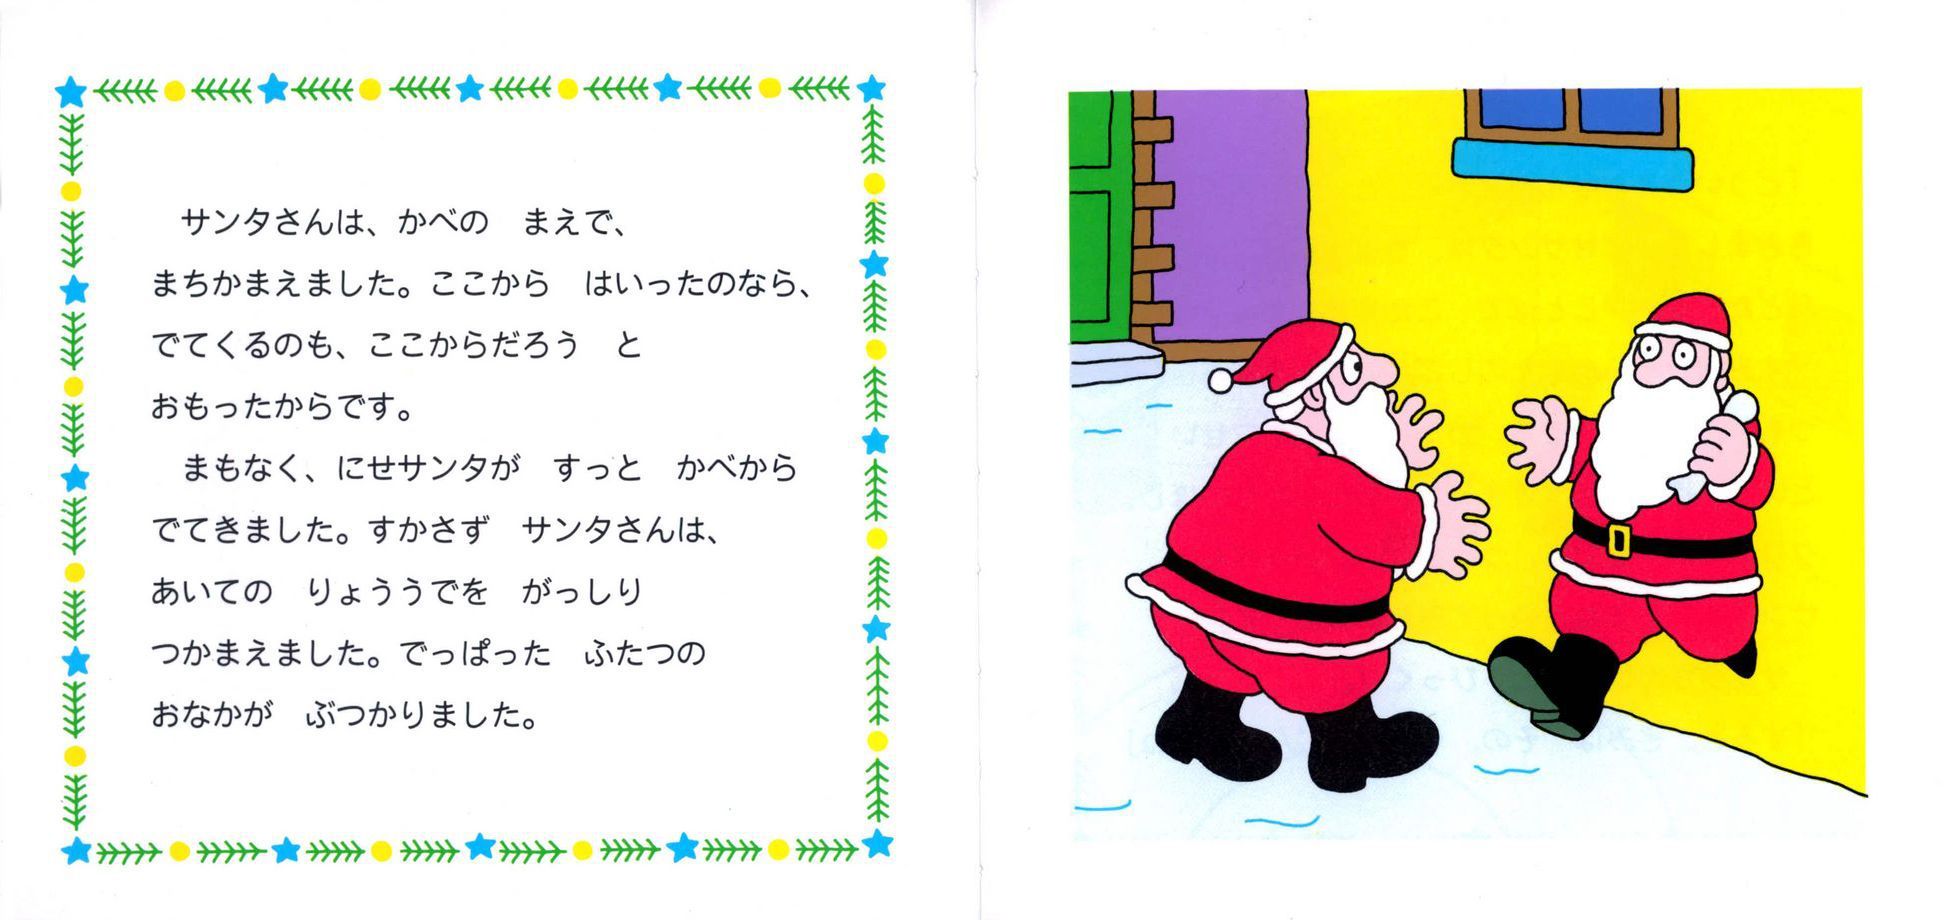 サンタさんは、かべの　まえで、
まちかまえました。ここから　はいったのなら、
でてくるのも、ここからだろう　と
おもったからです。
まもなく、にせサンタが　すっと　かべから
でてきました。すかさず　サンタさんは、
あいての　りょううでを　がっしり
つかまえました。でっぱった　ふたつの
おなかが　ぶつかりました。